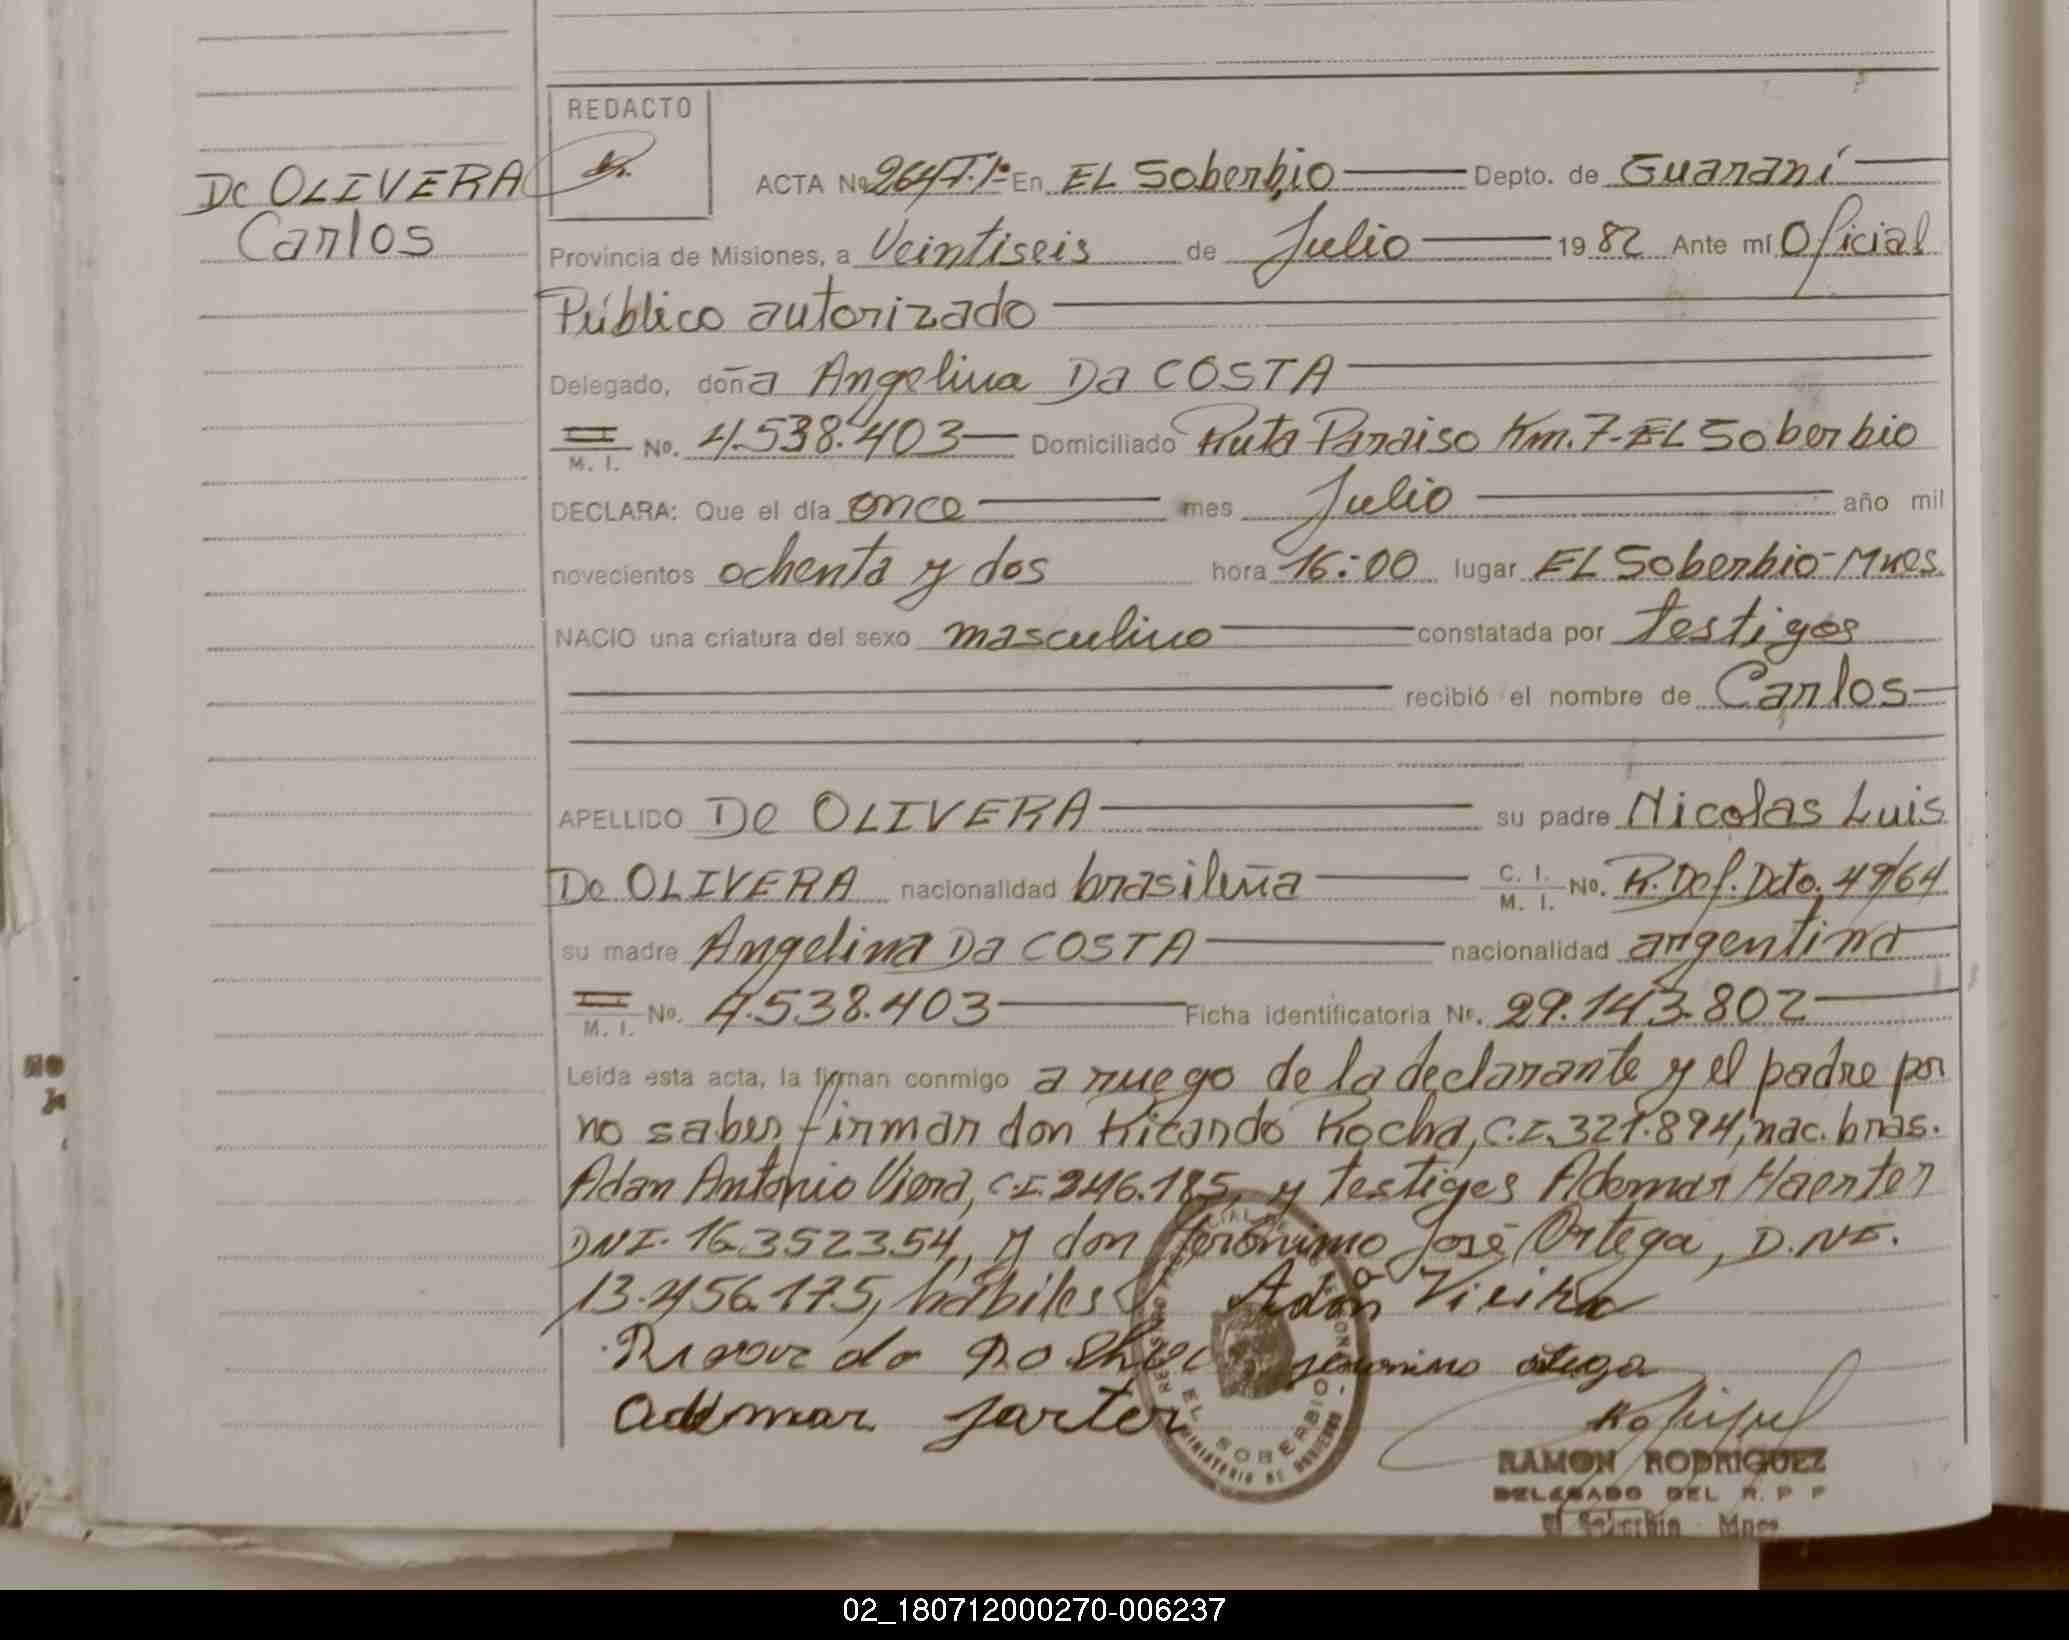 REDACTO
De OLIVERA
Carlos
ACTA No 264 T.1º En EL Soberbio Depto. de Guaraní
Provincia de Misiones, a Veintiseis de Julio 1982 Ante mí Oficial
Público autorizado
Delegado, doña Angelina Da COSTA
M. I. No. 4.538.403 Domiciliado Ruta Paraiso Km. 7-EL Soberbio
DECLARA: Que el día once mes Julio año mil
novecientos ochenta y dos hora 16:00 lugar EL Soberbio-Mnes.
NACIO una criatura del sexo masculino constatada por testigos
recibió el nombre de Carlos
APELLIDO De OLIVERA su padre Nicolas Luis
De OLIVERA nacionalidad brasileña C. I. M. I. No. R. Def. Dcto. 49/64
su madre Angelina Da COSTA nacionalidad argentina
M. I. No. 4.538.403 Ficha identificatoria No. 29.143.802
Leída esta acta, la firman conmigo a ruego de la declarante y el padre por
no saber firmar don Ricardo Rocha, C.I. 321.894, nac. bras.
Adan Antonio Viera, C.I. 246.185, y testigos Ademar Haerter
DNI. 16.352354, y don Jerónimo José Ortega, D.NI.
13.456.175, hábiles
Adán Vieira
Ricardo Rocha
Jeronimo ortega
Ademar Jarter
EL SOBERBIO
MINISTERIO DE GOBIERNO
RAMON RODRIGUEZ
DELEGADO DEL R. P. P
El Soberbio - Mnes
02_180712000270-006237